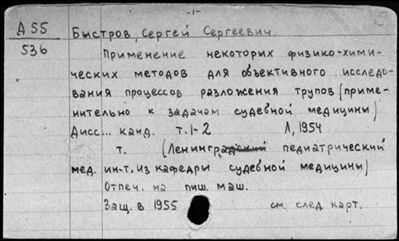 -1-
Д 55 Быстров, Сергей Сергеевич.
536 Применение некоторых физико-хими-
ческих методов для объективного исследо-
вания процессов разложения трупов (приме-
нительно к задачам судебной медицины)
Дисс... канд. т. 1-2 Л, 1954
т. (Ленинградский педиатрический
мед. ин-т. Из кафедры судебной медицины)
Отпеч. на пиш. маш.
Защ. в 1955 см. след карт.